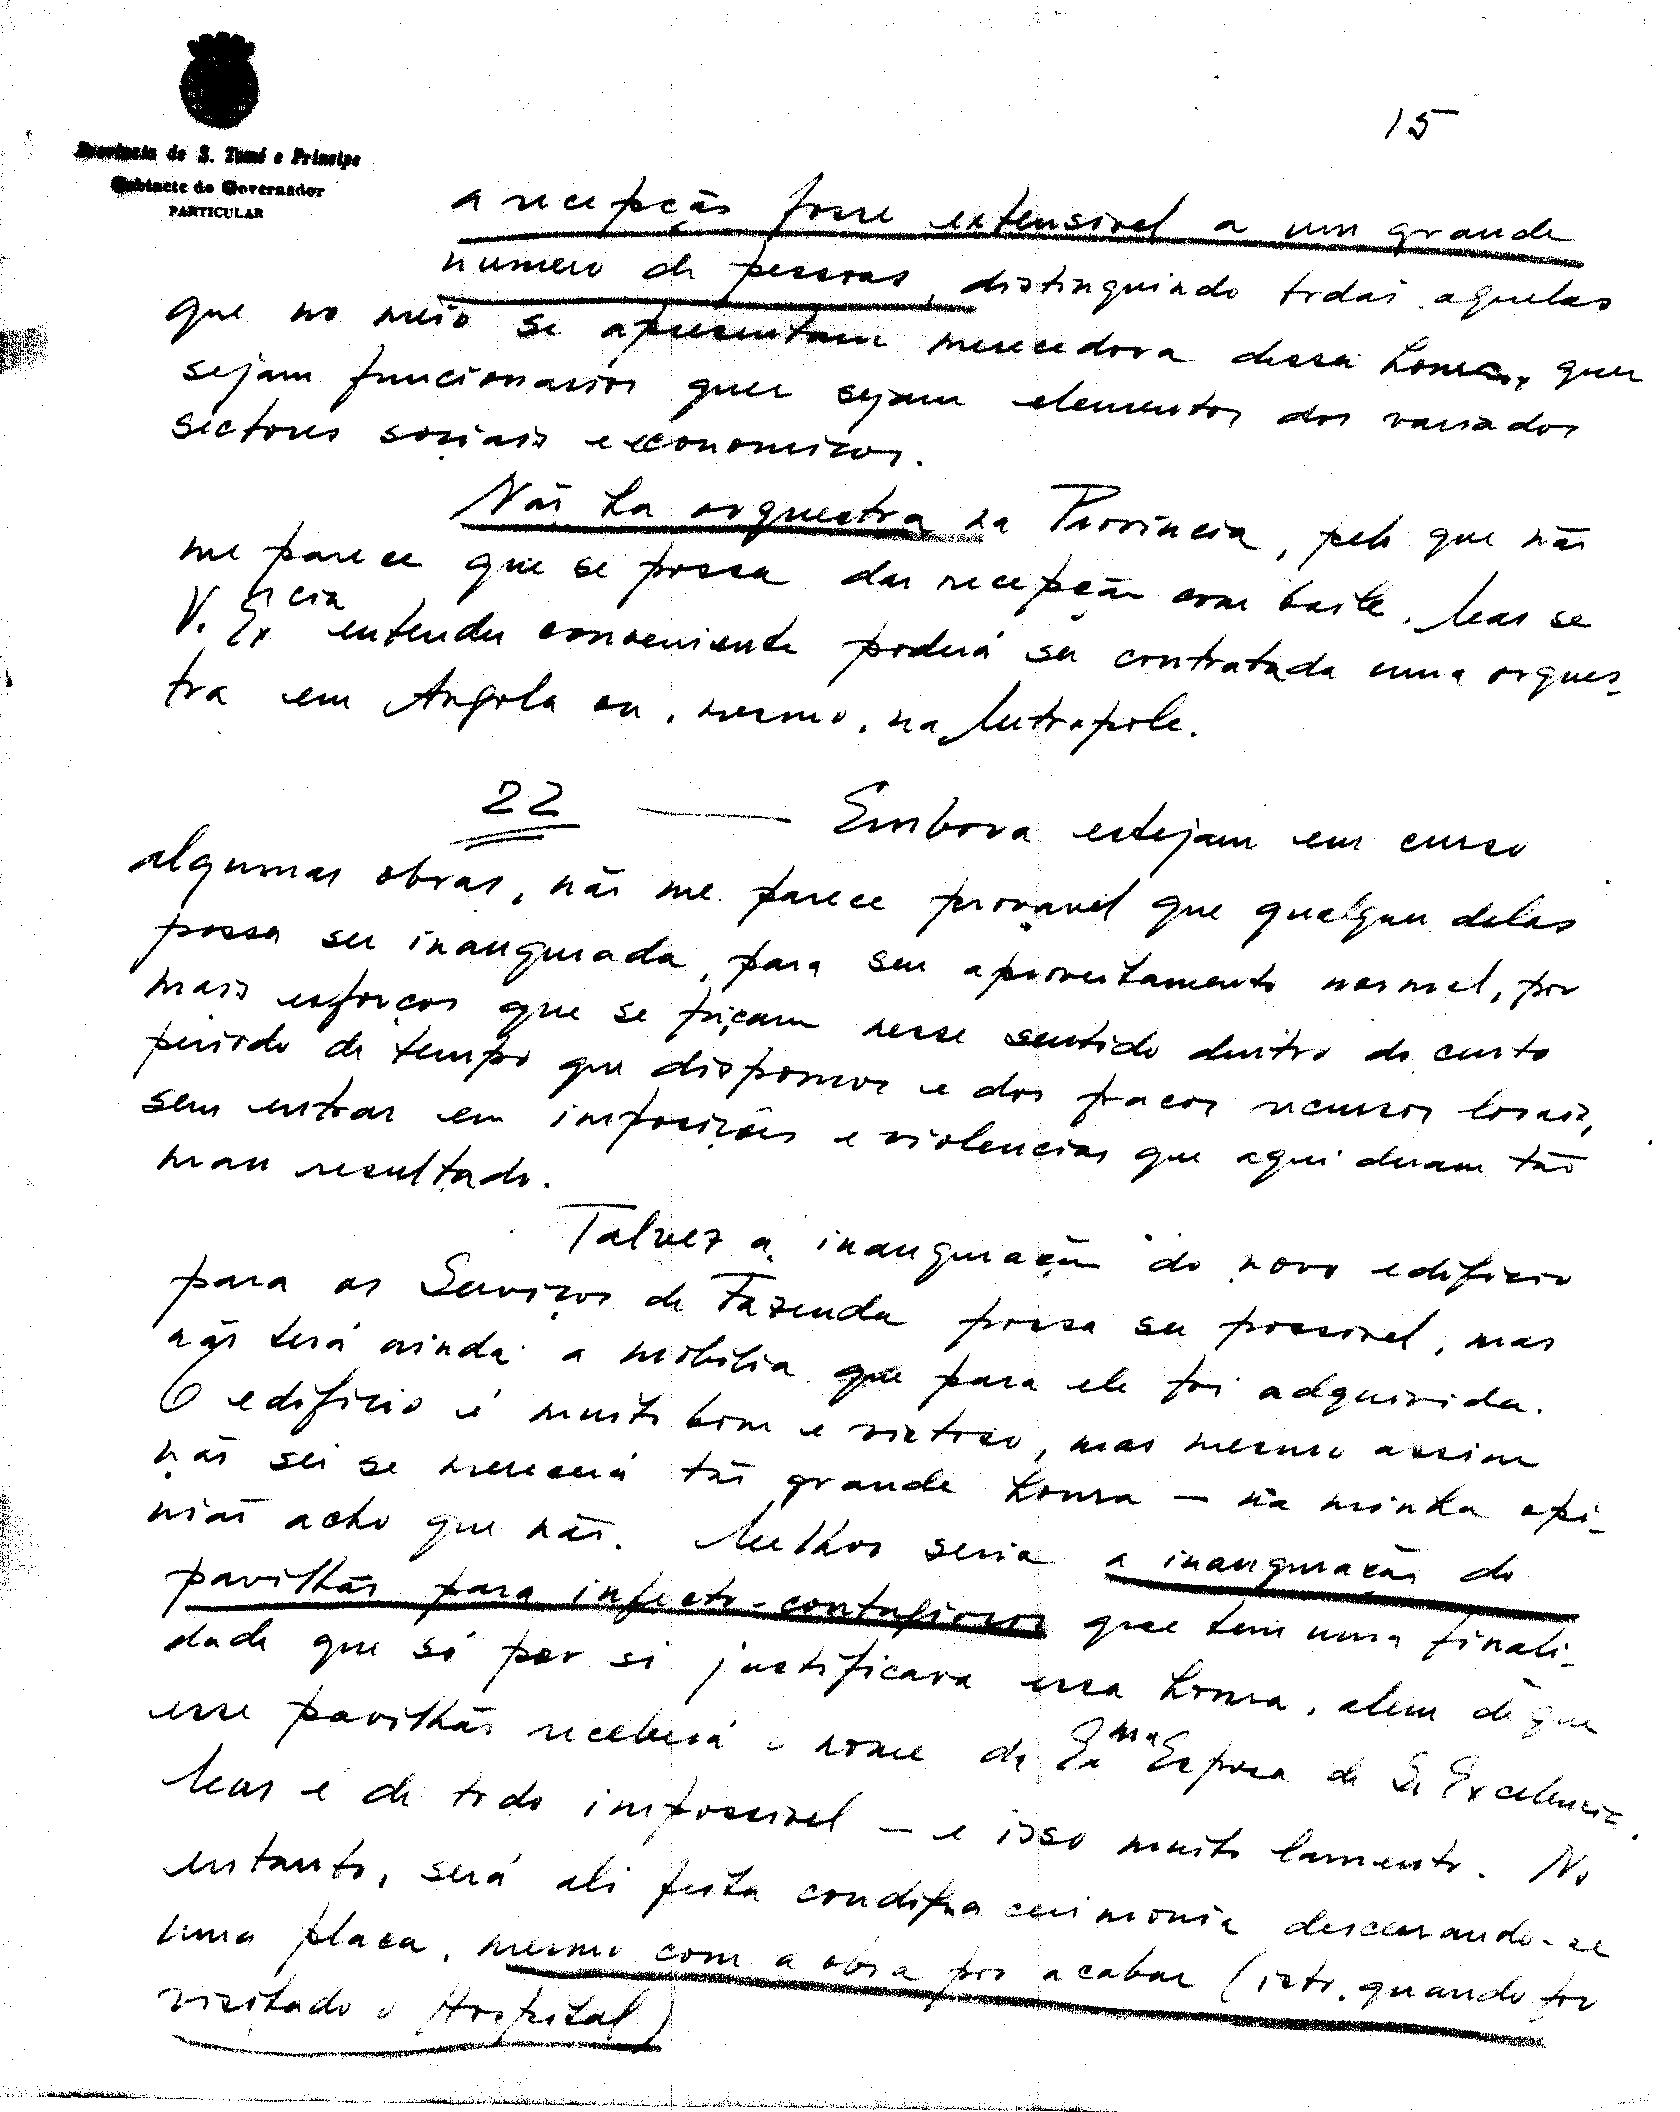 15
Provincia de S. Tomé e Principe
Gabinete do Governador
PARTICULAR
a recepção fosse extensivel a um grande
numero de pessoas, distinguindo todas aquelas
que no meio se apresentam merecedora dessa honra, quer
sejam funcionarios quer sejam elementos dos variados
sectores sociais e economicos.
Não ha orquestra na Provincia, pelo que não
me parece que se possa dar recepção com baile. Mas se
V. Ex.cia entender conveniente poderá ser contratada uma orques-
tra em Angola ou, mesmo, na Metropole.
22 — Embora estejam em curso
algumas obras, não me parece provavel que qualquer delas
possa ser inaugurada, para seu aproveitamento normal, por
mais esforços que se façam nesse sentido dentro do curto
periodo de tempo que dispomos e dos fracos recursos locais,
sem entrar em imposições e violencias que aqui deram tão
mau resultado.
Talvez a inauguração do novo edificio
para os Serviços de Fazenda possa ser possivel, mas
não terá ainda a mobilia que para ele foi adquirida.
O edificio é muito bom e vistoso, mas mesmo assim
não sei se merecerá tão grande honra — na minha opi-
nião acho que não. Melhor seria a inauguração do
pavilhão para infecto-contagiosos que tem uma finali-
dade que só por si justificava essa honra, alem de que
esse pavilhão receberá o nome da Exma Esposa de S. Excelencia.
Mas é de todo impossivel — e isso muito lamento. No
entanto, será ali feita condigna cerimonia descerrando-se
uma placa, mesmo com a obra por acabar (isto, quando for
visitado o Hospital)